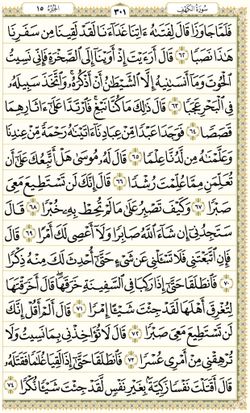 سُورَةُ الكَهْفِ ٣٠١ الجُزْءُ ١٥
فَلَمَّا جَاوَزَا قَالَ لِفَتَىٰهُ ءَاتِنَا غَدَآءَنَا لَقَدْ لَقِينَا مِن سَفَرِنَا
هَٰذَا نَصَبًا ٦٢ قَالَ أَرَءَيْتَ إِذْ أَوَيْنَآ إِلَى ٱلصَّخْرَةِ فَإِنِّى نَسِيتُ
ٱلْحُوتَ وَمَآ أَنسَىٰنِيهُ إِلَّا ٱلشَّيْطَٰنُ أَنْ أَذْكُرَهُۥ وَٱتَّخَذَ سَبِيلَهُۥ
فِى ٱلْبَحْرِ عَجَبًا ٦٣ قَالَ ذَٰلِكَ مَا كُنَّا نَبْغِ فَٱرْتَدَّا عَلَىٰٓ ءَاثَارِهِمَا
قَصَصًا ٦٤ فَوَجَدَا عَبْدًا مِّنْ عِبَادِنَآ ءَاتَيْنَٰهُ رَحْمَةً مِّنْ عِندِنَا
وَعَلَّمْنَٰهُ مِن لَّدُنَّا عِلْمًا ٦٥ قَالَ لَهُۥ مُوسَىٰ هَلْ أَتَّبِعُكَ عَلَىٰٓ أَن
تُعَلِّمَنِ مِمَّا عُلِّمْتَ رُشْدًا ٦٦ قَالَ إِنَّكَ لَن تَسْتَطِيعَ مَعِىَ
صَبْرًا ٦٧ وَكَيْفَ تَصْبِرُ عَلَىٰ مَا لَمْ تُحِطْ بِهِۦ خُبْرًا ٦٨ قَالَ
سَتَجِدُنِىٓ إِن شَآءَ ٱللَّهُ صَابِرًا وَلَآ أَعْصِى لَكَ أَمْرًا ٦٩ قَالَ
فَإِنِ ٱتَّبَعْتَنِى فَلَا تَسْـَٔلْنِى عَن شَىْءٍ حَتَّىٰٓ أُحْدِثَ لَكَ مِنْهُ ذِكْرًا
٧٠ فَٱنطَلَقَا حَتَّىٰٓ إِذَا رَكِبَا فِى ٱلسَّفِينَةِ خَرَقَهَا قَالَ أَخَرَقْتَهَا
لِتُغْرِقَ أَهْلَهَا لَقَدْ جِئْتَ شَيْـًٔا إِمْرًا ٧١ قَالَ أَلَمْ أَقُلْ إِنَّكَ
لَن تَسْتَطِيعَ مَعِىَ صَبْرًا ٧٢ قَالَ لَا تُؤَاخِذْنِى بِمَا نَسِيتُ وَلَا
تُرْهِقْنِى مِنْ أَمْرِى عُسْرًا ٧٣ فَٱنطَلَقَا حَتَّىٰٓ إِذَا لَقِيَا غُلَٰمًا فَقَتَلَهُۥ
قَالَ أَقَتَلْتَ نَفْسًا زَكِيَّةًۢ بِغَيْرِ نَفْسٍ لَّقَدْ جِئْتَ شَيْـًٔا نُّكْرًا ٧٤